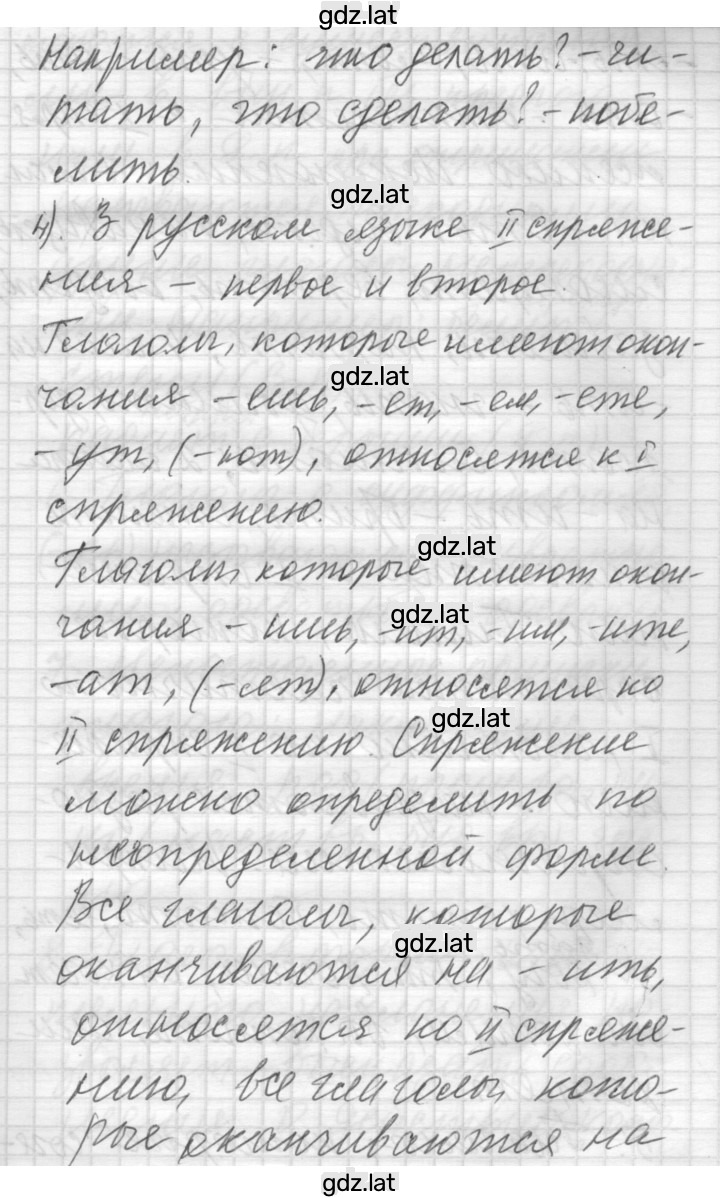 gdz.lat
Например: что делать? - чи-
тать, что сделать? - побе-
лить.
gdz.lat
4). В русском языке II спряже-
ния - первое и второе.
Глаголы, которые имеют окон-
gdz.lat
чания - ешь, -ет, -ем, -ете,
-ут, (-ют), относятся к I
спряжению.
gdz.lat
Глаголы, которые имеют окон-
gdz.lat
чания - ишь, -ит, -им, -ите,
-ат, (-ят), относятся ко
gdz.lat
II спряжению. Спряжение
можно определить по
неопределенной форме.
Все глаголы, которые
gdz.lat
оканчиваются на - ить,
относятся ко II спряже-
нию, все глаголы, кото-
рые оканчиваются на
gdz.lat